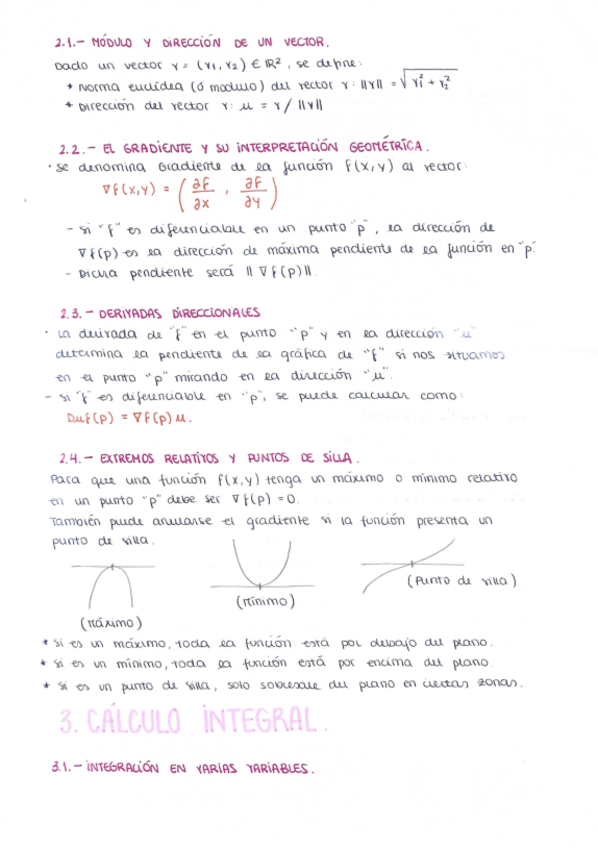 2.1.- MÓDULO Y DIRECCIÓN DE UN VECTOR.
Dado un vector v = (v1, v2) ∈ ℝ², se define:
* Norma euclídea (ó modulo) del vector v: ||v|| = √(v1² + v2²)
* Dirección del vector v: u = v / ||v||
2.2.- EL GRADIENTE Y SU INTERPRETACIÓN GEOMÉTRICA.
· Se denomina Gradiente de la función f(x,y) al vector:
∇f(x,y) = (∂f/∂x , ∂f/∂y)
- Si "f" es diferenciable en un punto "p", la dirección de
∇f(p) es la dirección de máxima pendiente de la función en "p".
- Dicha pendiente será ||∇f(p)||.
2.3.- DERIVADAS DIRECCIONALES
· La derivada de "f" en el punto "p" y en la dirección "u"
determina la pendiente de la gráfica de "f" si nos situamos
en el punto "p" mirando en la dirección "u".
- Si "f" es diferenciable en "p", se puede calcular como:
Duf(p) = ∇f(p) u.
2.4.- EXTREMOS RELATIVOS Y PUNTOS DE SILLA.
Para que una función f(x,y) tenga un máximo o mínimo relativo
en un punto "p" debe ser ∇f(p) = 0.
También puede anularse el gradiente si la función presenta un
punto de silla.
(Máximo)
(Mínimo)
(Punto de silla)
* Si es un máximo, toda la función está por debajo del plano.
* Si es un mínimo, toda la función está por encima del plano.
* Si es un punto de silla, solo sobresale del plano en ciertas zonas.
3. CÁLCULO INTEGRAL.
3.1.- INTEGRACIÓN EN VARIAS VARIABLES.